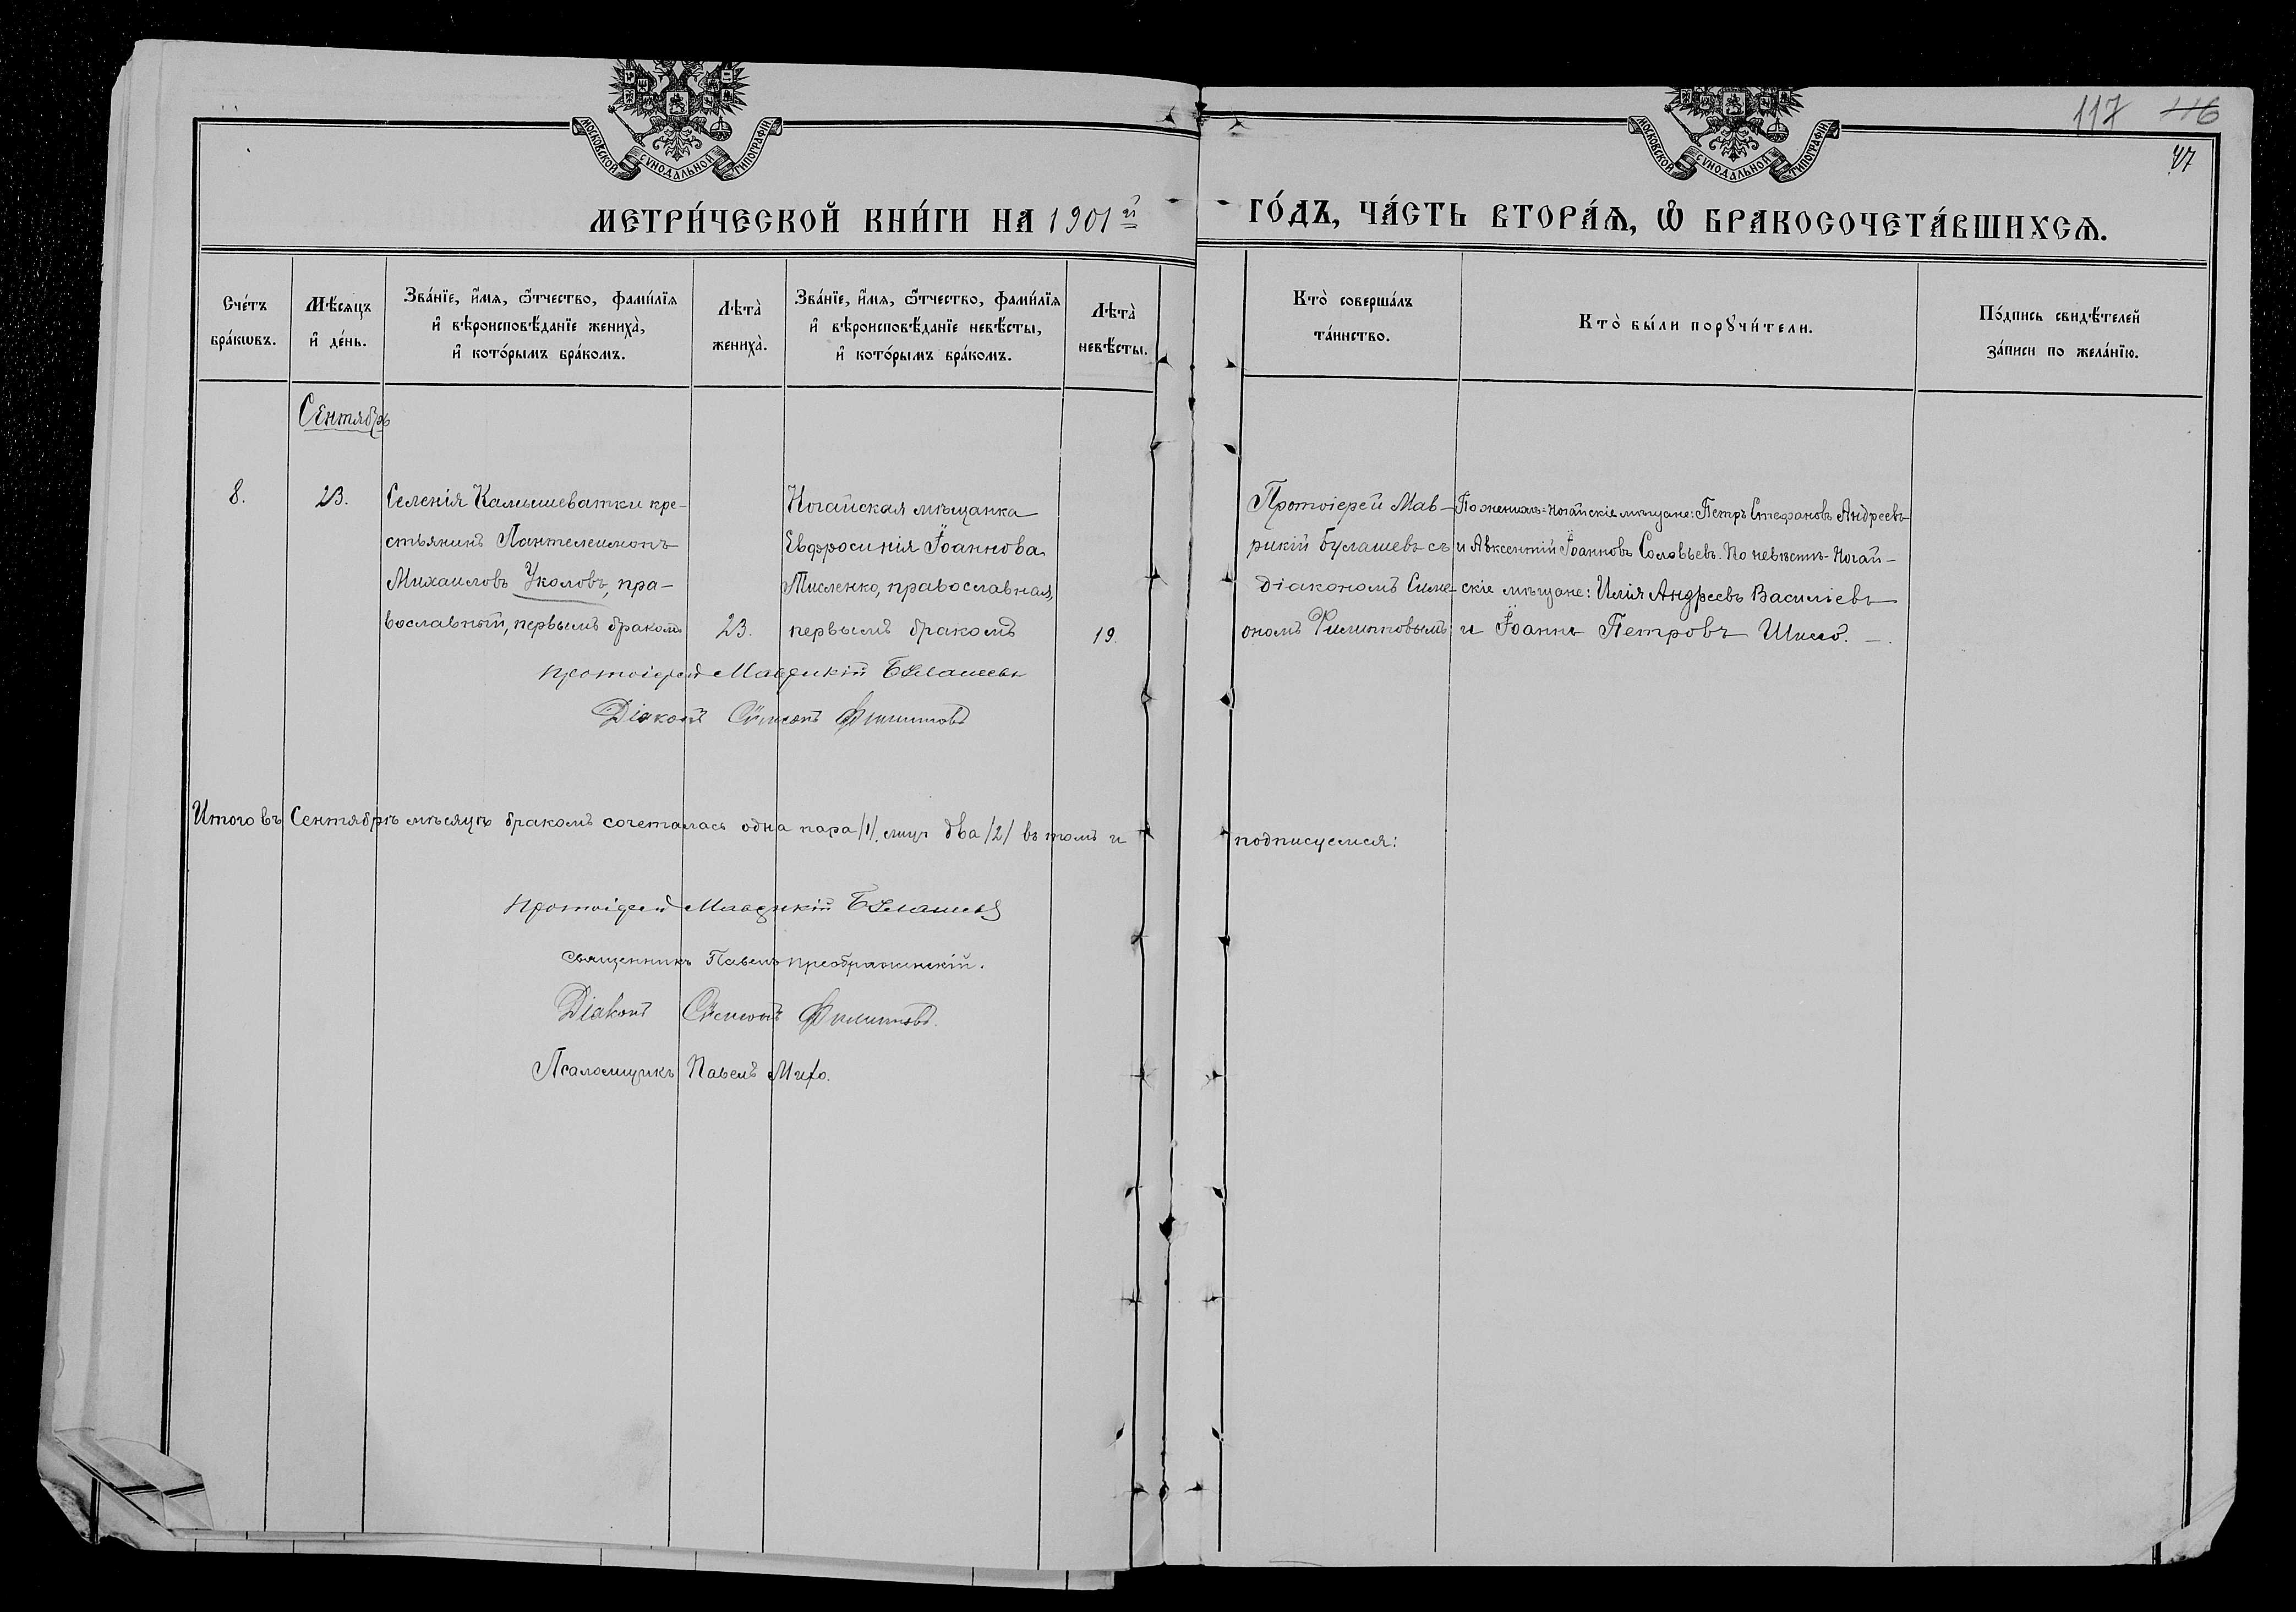 МОСКОВСКОЙ СУНОДАЛЬНОЙ ТИПОГРАФІИ
МОСКОВСКОЙ СУНОДАЛЬНОЙ ТИПОГРАФІИ
117 116
47
МЕТРИ́ЧЕСКОЙ КНИ́ГИ НА 1901й
ГО́ДЪ, ЧА́СТЬ ВТОРА́Ѧ, Ѡ҆ БРАКОСОЧЕТА́ВШИХСѦ.
Сче́тъ
бра́кѡвъ.
Мѣ́сяцъ
и҆ де́нь.
Зва́нїе, и҆́мя, ѻ҆́тчество, фами́лїя
и҆ вѣроисповѣ́данїе жениха̀,
и҆ кото́рымъ бра́комъ.
Лѣта̀
жениха̀.
Зва́нїе, и҆́мя, ѻ҆́тчество, фами́лїя
и҆ вѣроисповѣ́данїе невѣ́сты,
и҆ кото́рымъ бра́комъ.
Лѣта̀
невѣ́сты.
Кто̀ соверша́лъ
та́инство.
Кто̀ бы́ли порꙋчи́тели.
По́дпись свидѣ́телей
за́писи по жела́нїю.
Сентябрь
8.
23.
Селенія Камышеватки кре-
стьянинъ Пантелеимонъ
Михаиловъ Уколовъ, пра-
вославный, первымъ бракомъ
23.
Ногайская мѣщанка
Евфросинія Іоаннова
Тисленко, православная,
первымъ бракомъ
19.
Протоіерей Мав-
рикій Булашевъ съ
діакономъ Симе-
ономъ Филипповымъ
По женихѣ: Ногайскіе мѣщане: Петръ Стефановъ Андреевъ
и Авксентій Іоанновъ Соловьевъ. По невѣстѣ - Ногай-
скіе мѣщане: Илія Андреевъ Василіевъ
и Іоаннъ Петровъ
Протоіерей Маврикій Булашевъ
Діаконъ Симеонъ Филипповъ
Итого въ Сентябрѣ мѣсяцѣ бракомъ сочеталась одна пара /1/. лицъ два /2/ въ томъ и
подписуемся:
Протоіерей Маврикій Булашевъ
Священникъ Павелъ Преображенскій.
Діаконъ Симеонъ Филипповъ.
Псаломщикъ Павелъ